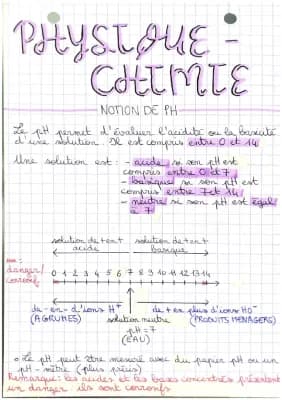 PHYSIQUE -
CHIMIE
NOTION DE PH
Le pH permet d'évaluer l'acidité ou la basicité
d'une solution. Il est compris entre 0 et 14
Une solution est : - acide si son pH est
compris entre 0 et 7
- basique si son pH est
compris entre 7 et 14
- neutre si son pH est égal
à 7
solution de + en + solution de + en +
acide basique
danger/ 0 1 2 3 4 5 6 7 8 9 10 11 12 13 14
corrosifs
de - en - d'ions H+ de + en plus d'ions HO-
(AGRUMES) solution neutre (PRODUITS MENAGERS)
pH = 7
(EAU)
Le pH peut être mesuré avec du papier pH ou un
pH-mètre (plus précis)
Remarque : les acides et les bases concentrés présentent
un danger ils sont corrosifs